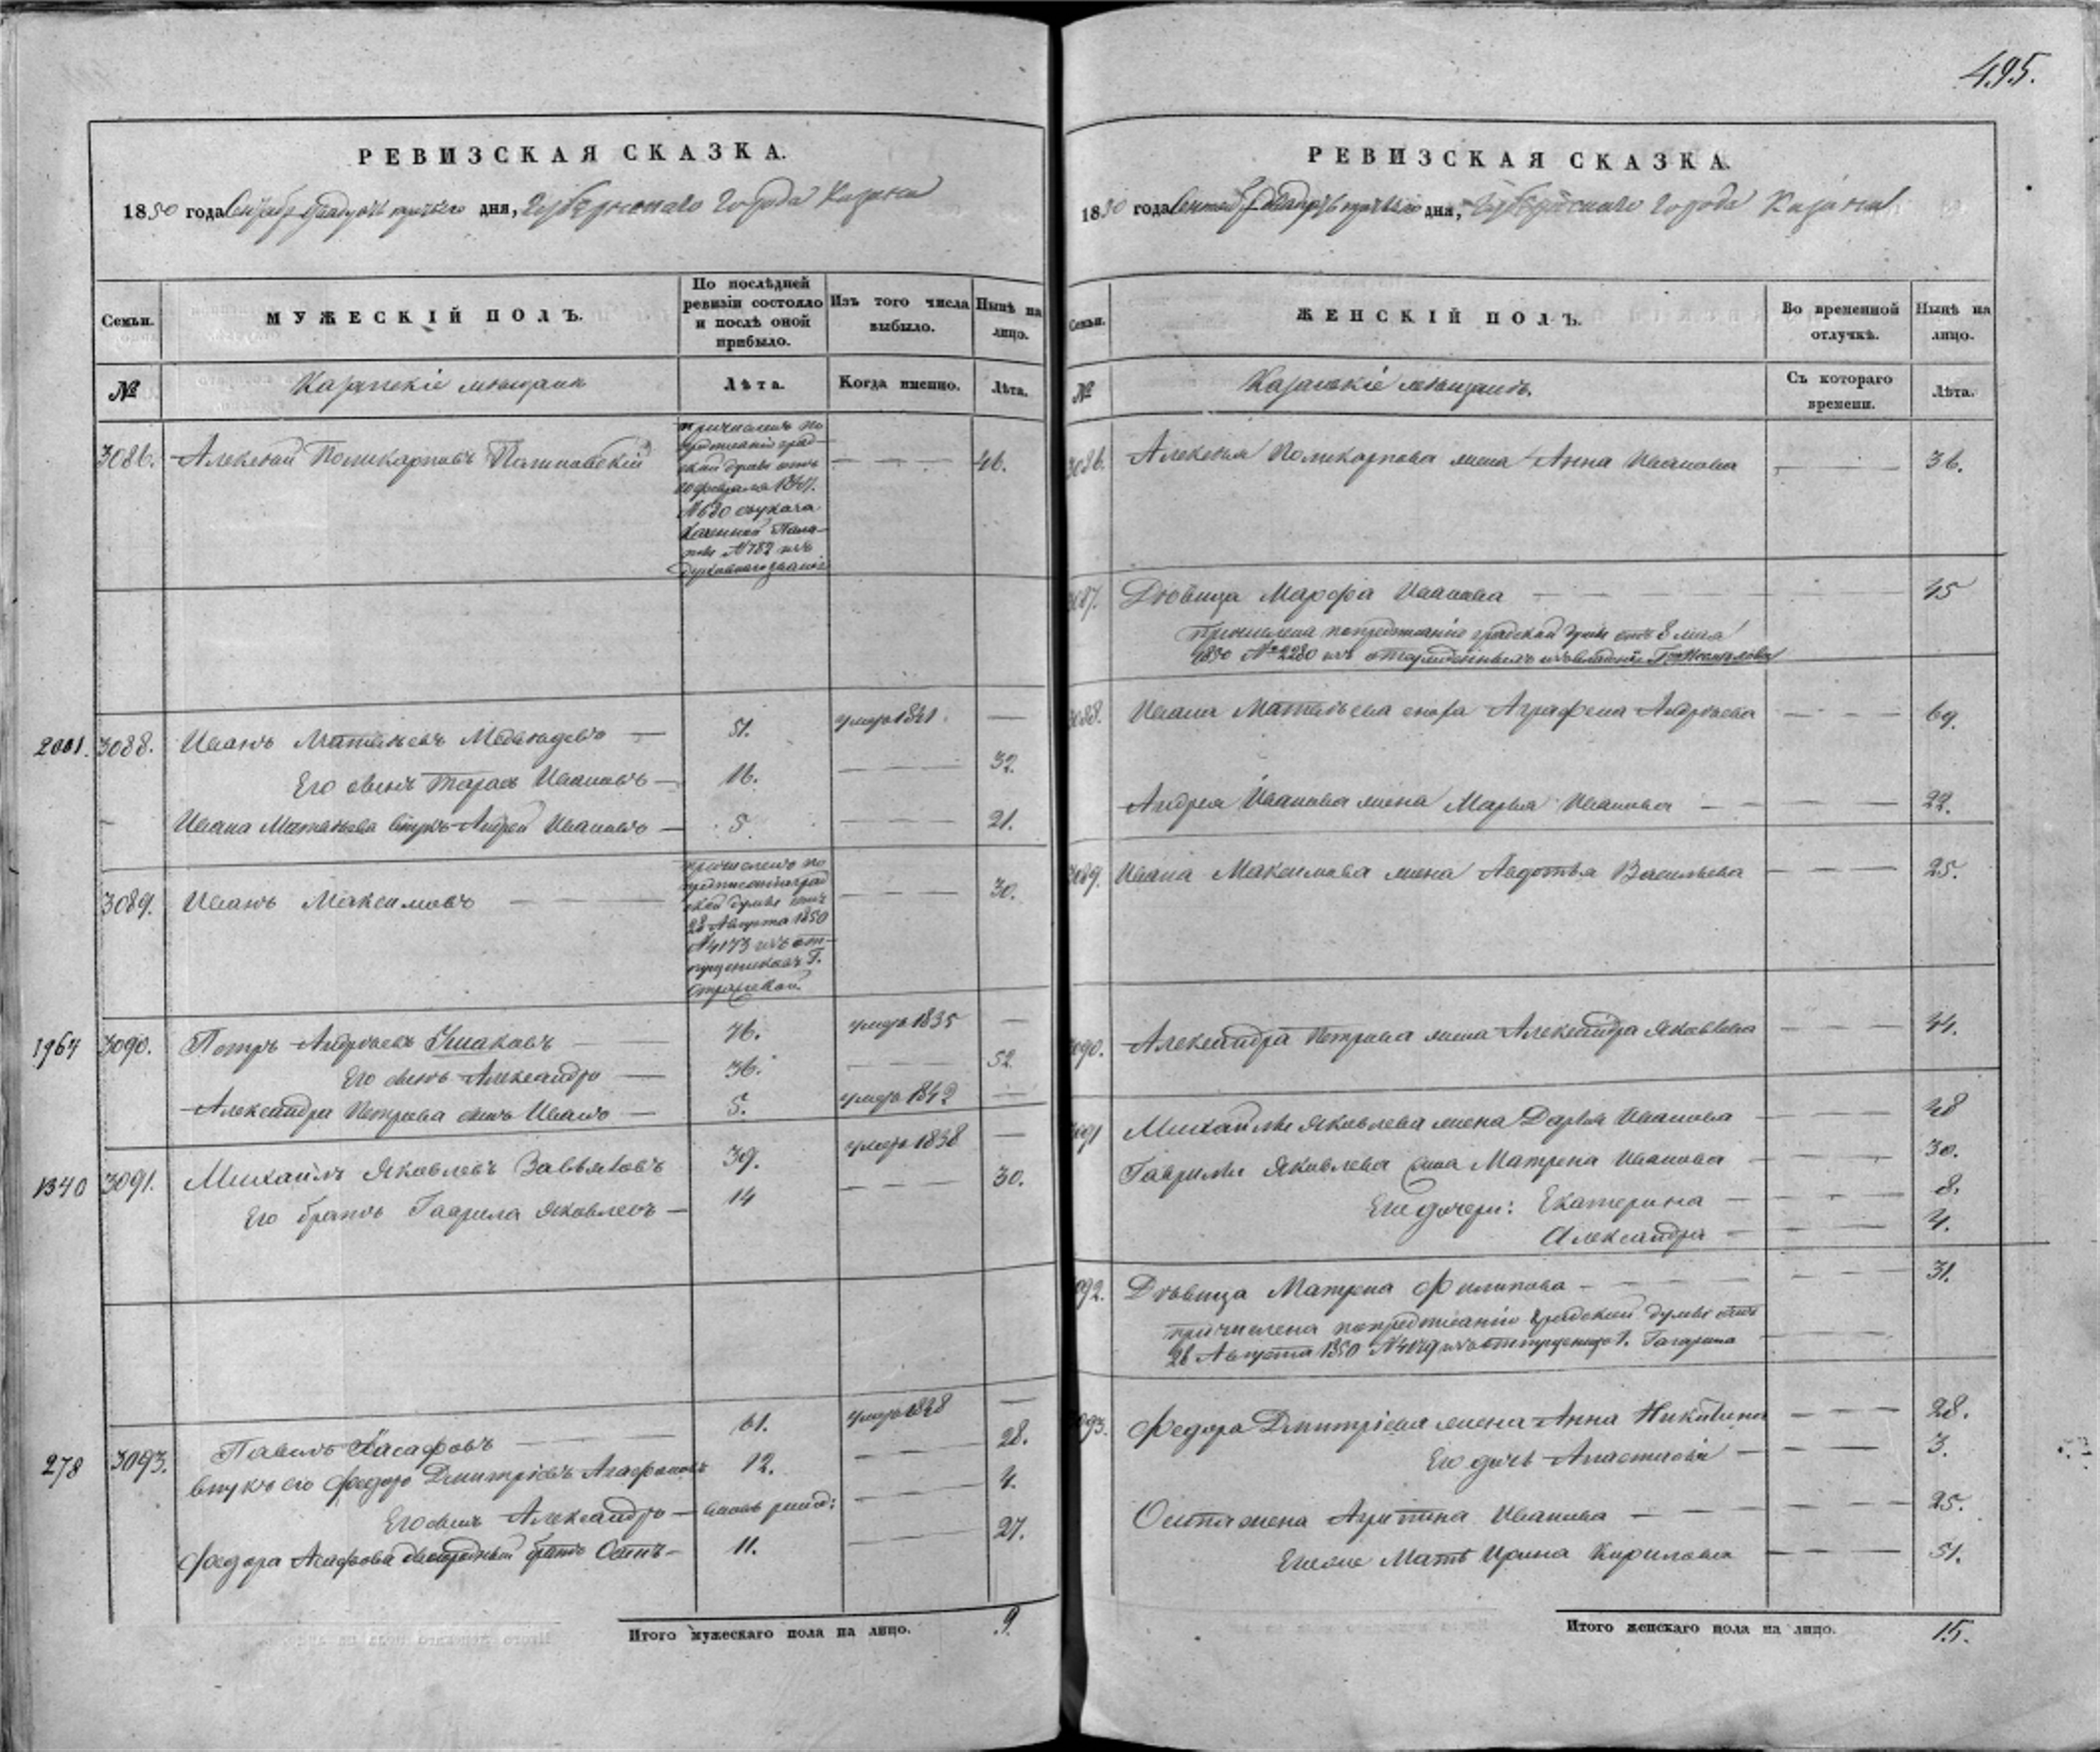 495.
РЕВИЗСКАЯ СКАЗКА.
1850 года Сентября двадцать третьего дня, Губернскаго города Казани
Семьи.
МУЖЕСКІЙ ПОЛЪ.
По послѣдней ревизіи состояло и послѣ оной прибыло.
Изъ того числа выбыло.
Нынѣ на лицо.
№
Казанскіе мѣщане
Лѣта.
Когда именно.
Лѣта.
3086. Алексѣй Поликарповъ 46.
причисленъ по
предписанію град-
ской думы отъ
февраля
№ 620 съ указа
Казенной Пала-
ты № 782 изъ
духовнаго званія
2001. 3088. Иванъ Матвѣевъ Медвѣдевъ — 51. умеръ 1841. —
Его сынъ Тарасъ Ивановъ — 16. 32.
Ивана Матвѣева Андрей Ивановъ — 5. 21.
3089. Иванъ Максимовъ 30.
причисленъ по
предписанію град
ской думы отъ
28 Августа 1850
№ 4173 изъ от-
пущенниковъ Г.
1964 3090. Петръ Андреевъ Ушаковъ — 46. умеръ 1835 —
Его сынъ Александръ — 36. 52.
Александра Петрова сынъ Иванъ — 5. умеръ 1842 —
1340 3091. Михаилъ Яковлевъ Завьяловъ 39. умеръ 1838 —
Его братъ Гаврила Яковлевъ — 14 30.
278 3093. Павелъ 61. умеръ 1848 —
внукъ его Федоръ Дмитріевъ 12. 28.
Его сынъ Александръ — вновь рожд: 4.
Федора двоюродный братъ Осипъ — 11. 27.
Итого мужескаго пола на лицо. 9.
РЕВИЗСКАЯ СКАЗКА.
1850 года Сентября двадцать третьего дня, Губернскаго города Казани
Семьи.
ЖЕНСКІЙ ПОЛЪ.
Во временной отлучкѣ.
Нынѣ на лицо.
№
Казанскіе мѣщане.
Съ котораго времени.
Лѣта.
3086. Алексѣя Поликарпова жена Анна Иванова 36.
3087. Дѣвица Марфа Иванова 45
причислена по предписанію градской думы отъ 8 мая
1850 № 2280 изъ
3088. Ивана Матвѣева снова Аграфена Андреева 69.
Андрея Иванова жена Марья Иванова 22.
3089. Ивана Максимова жена Авдотья Васильева 25.
3090. Александра Петрова жена Александра Яковлева 44.
3091 Михайлы Яковлева жена Дарья Иванова 48
Гаврилы Яковлева жена Матрена Иванова 30.
Его дочери: Екатерина 8.
Александра 4.
3092. Дѣвица Матрена Филипова 31.
причислена по предписанію градской думы отъ
28 Августа 1850 № 4179 изъ отпущенницъ Г. Гагарина
3093. Федора Дмитріева жена Анна Никитина 28.
Его дочь Анастасія 3.
Осипа жена Агрипина Иванова 25.
Мать Ирина Кирилова 51.
Итого женскаго пола на лицо. 15.